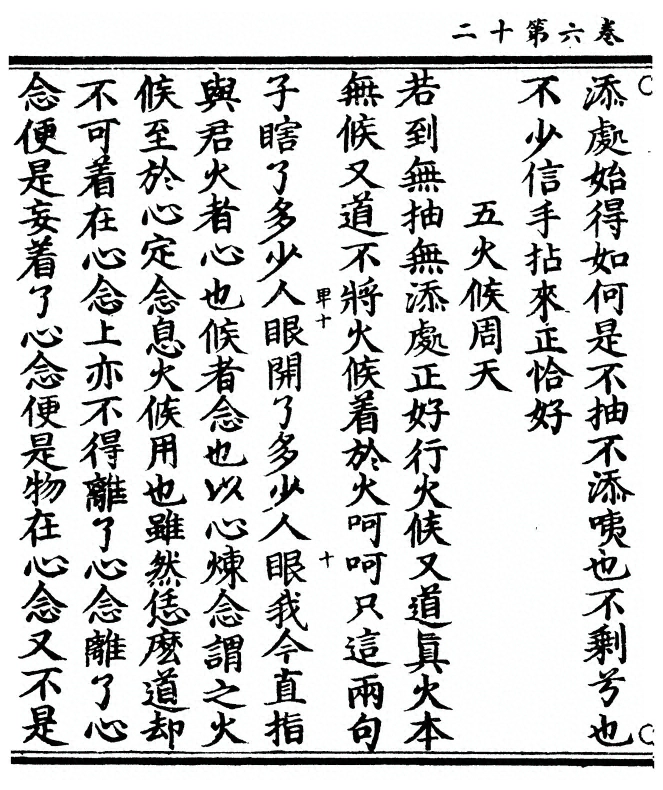 卷六第十二
添處始得如何是不抽不添咦也不剩兮也
不少信手拈來正恰好
五火候周天
若到無抽無添處正好行火候又道真火本
無候又道不將火候着於火呵呵只這兩句
甲十
十
子瞎了多少人眼開了多少人眼我今直指
與君火者心也候者念也以心煉念謂之火
候至於心定念息火候用也雖然恁麽道却
不可着在心念上亦不得離了心念離了心
念便是妄着了心念便是物在心念又不是